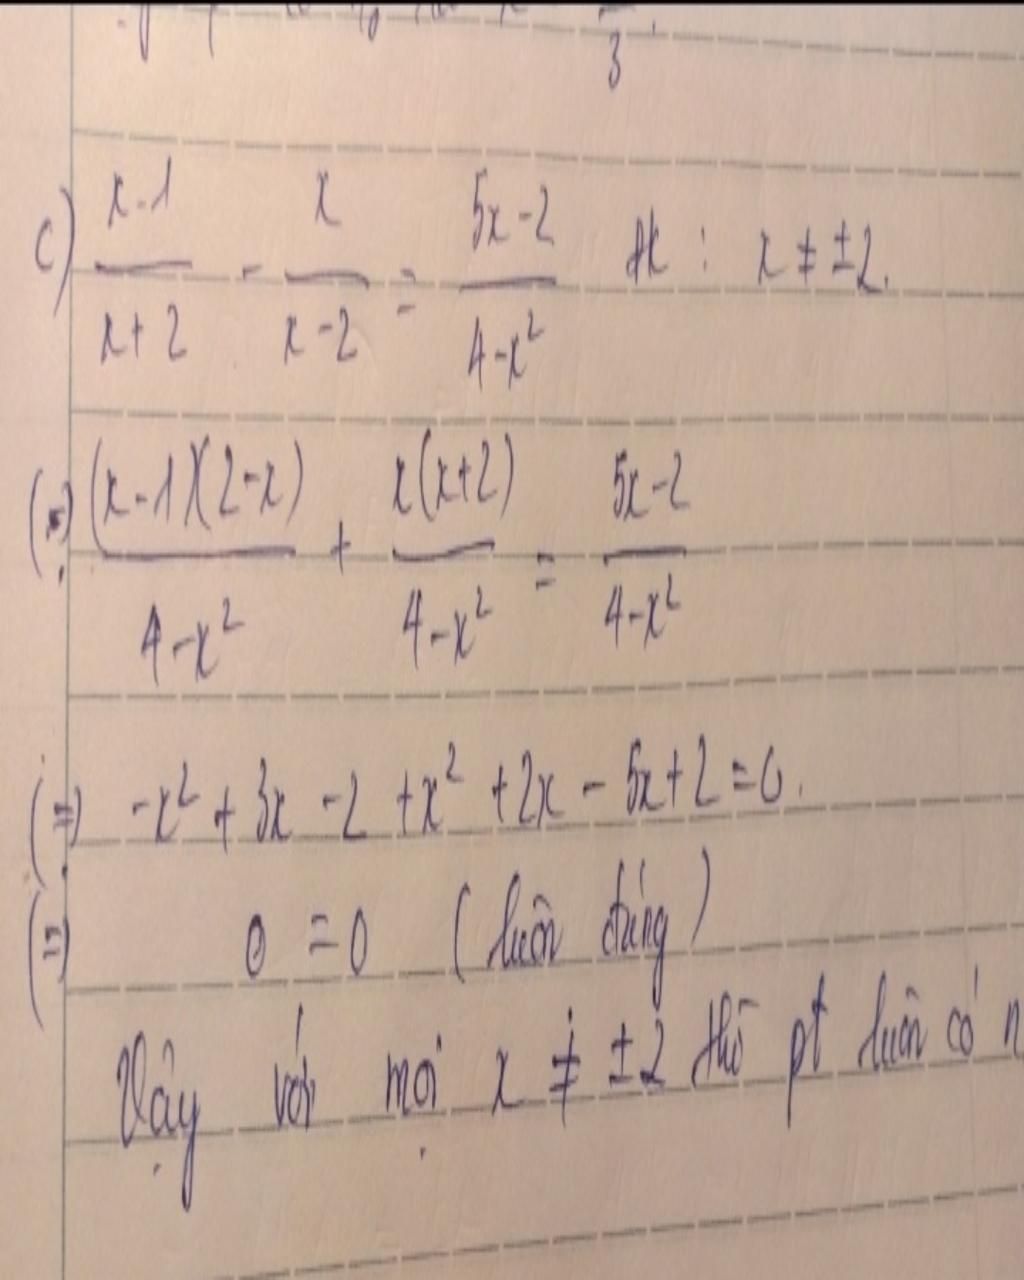 3
c) \frac{x-1}{x+2} - \frac{x}{x-2} = \frac{5x-2}{4-x^2} đk : x ≠ ±2.
(=) \frac{(x-1)(2-x)}{4-x^2} + \frac{x(x+2)}{4-x^2} = \frac{5x-2}{4-x^2}
(=) -x^2 + 3x - 2 + x^2 + 2x - 5x + 2 = 0.
(=) 0 = 0 (luôn đúng)
Vậy với mọi x ≠ ±2 thì pt luôn có n